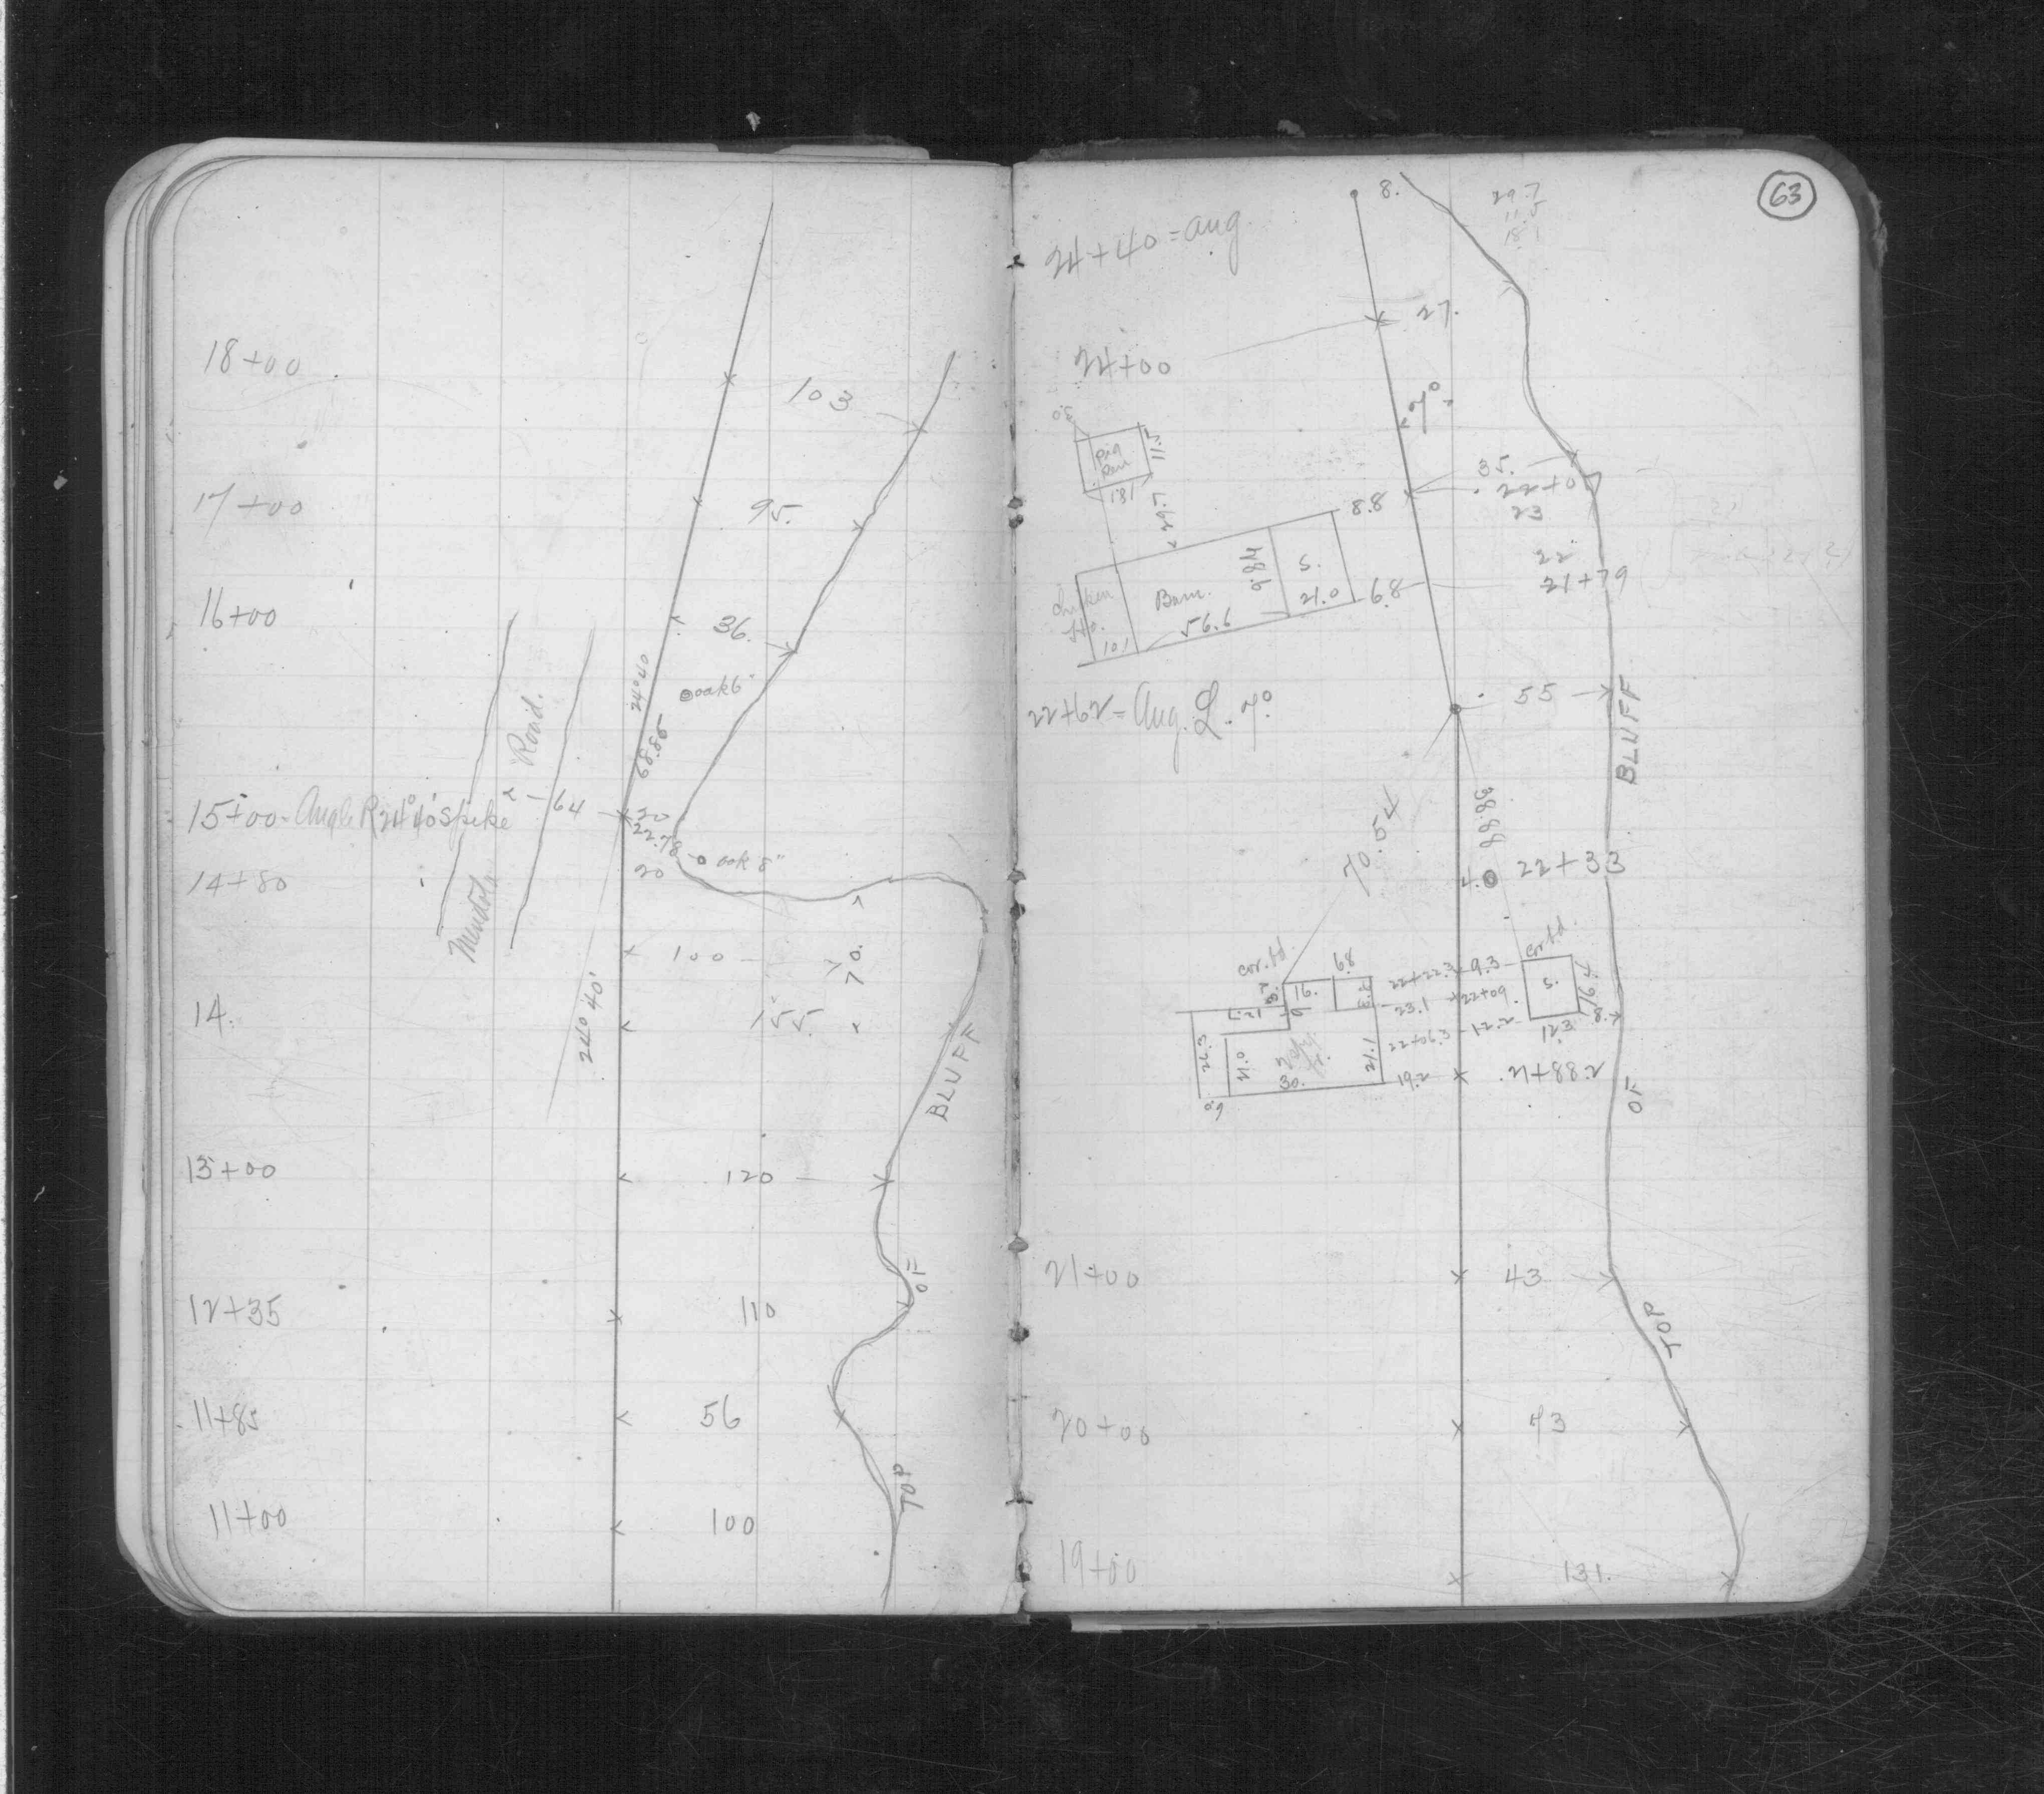 18+00
103
17+00
95.
16+00
36.
24°40
oak 6"
68.86
Road.
15+00 - Angle R 24°40' spike
64
20
22.78
oak 8"
14+80
20
Mendota
100
70.
24° 40'
14.
155.
BLUFF
13+00
120
OF
12+35
110
11+85
56
TOP
11+00
100
63
8.
29.7
11.5
18.
24+40 = Ang
27.
24+00
7°
Pig
Pen
11.5
18.1
29.7
35.
22+0
23
8.8
22
21+79
S.
21.0
6.8
Barn.
56.6
Chicken
Ho.
10.1
22+62 = Ang. L. 7°
55
BLUFF
70.54
38.88
4.0
22+33
cor. fd.
68
16.
22+22.3
9.3
cor. fd.
S.
16.4
12.7
23.1
22+09
22+06.3
12.2
12.3
8.
26.3
21.0
30.
21.1
19.2
21+88.2
6.0
OF
21+00
43
TOP
20+00
73
19+00
131.